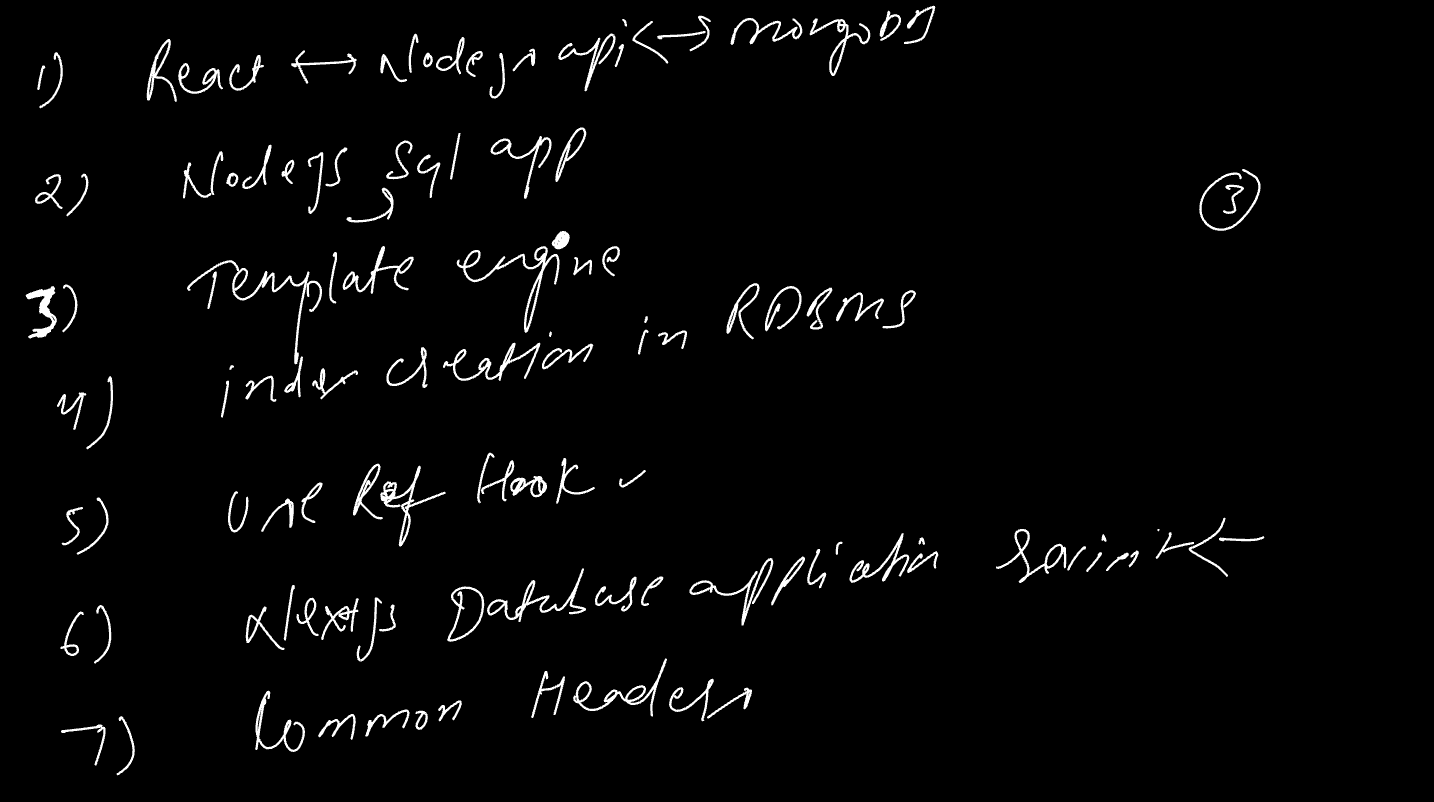 1) React ↔ Nodejs api ↔ MongoDB
2) Nodejs Sql app
3
3) Template engine
4) index creation in RDBMS
5) Use Ref Hook ✓
6) Nextjs Database application ←
7) Common Headers